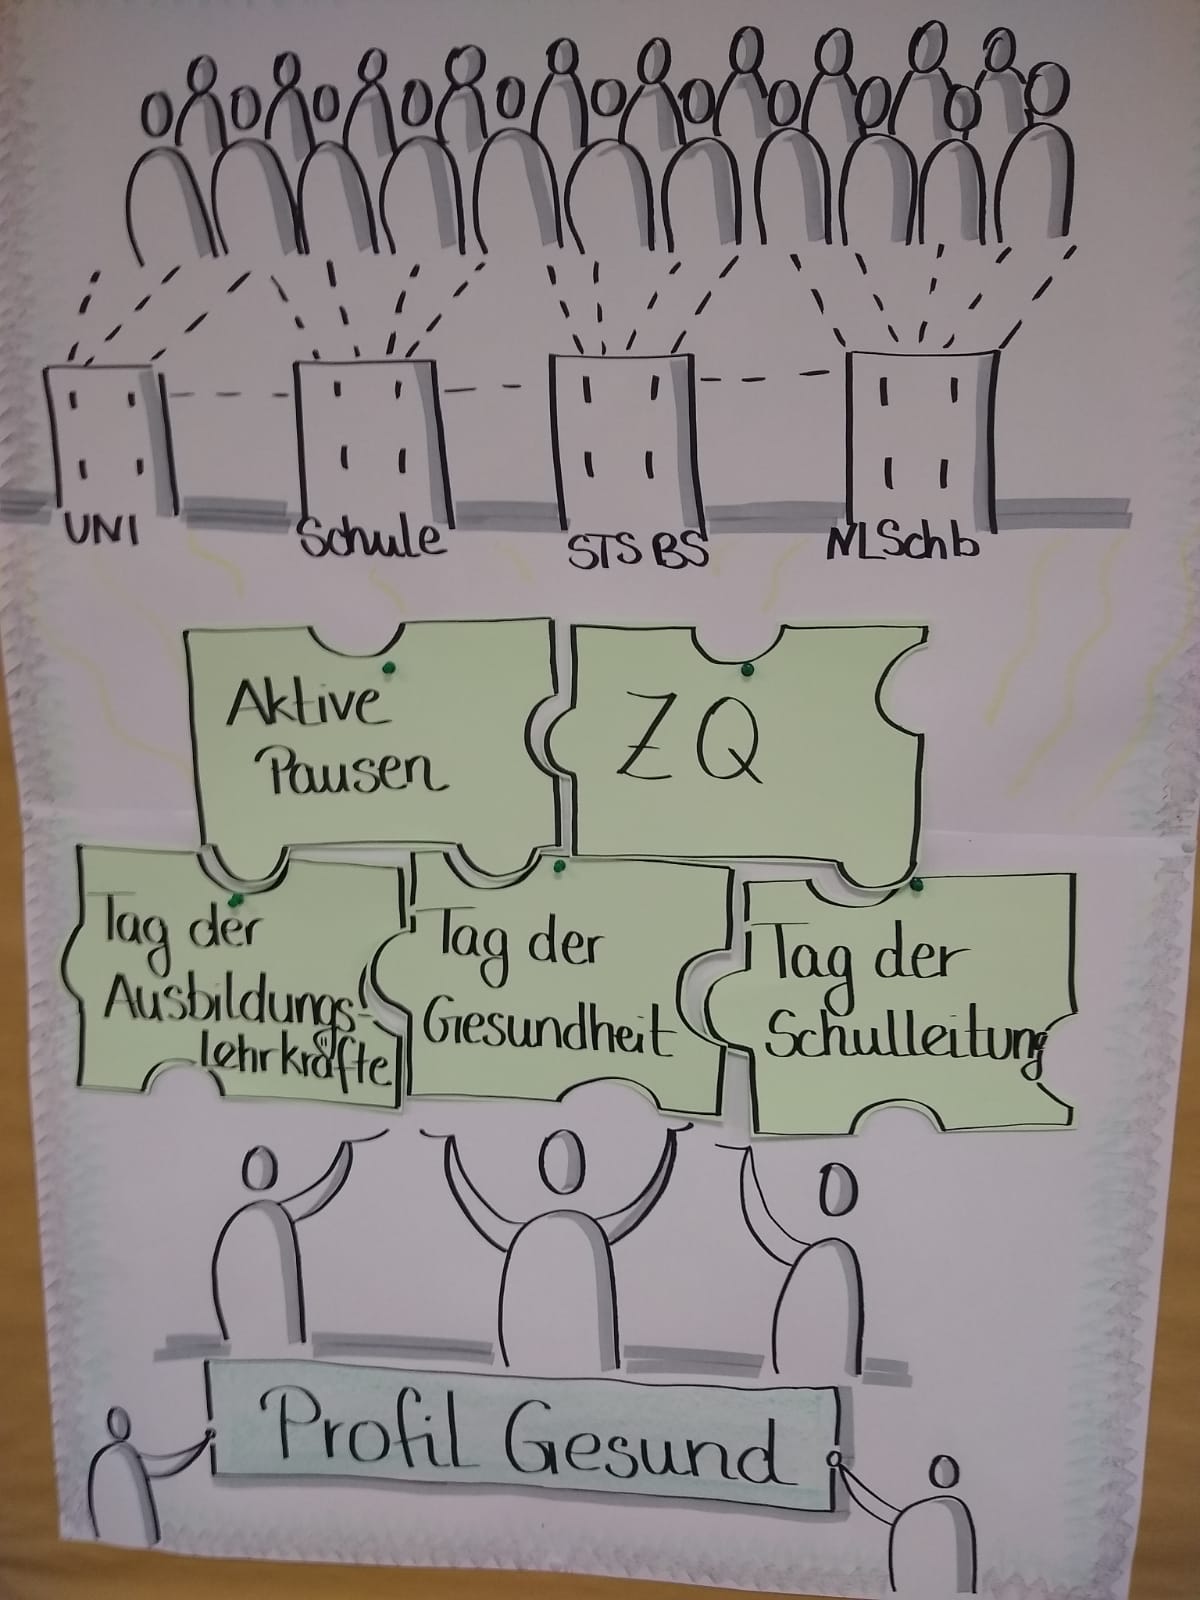 UNI
Schule
STS BS
NLSchb
Aktive
Pausen
ZQ
Tag der
Ausbildungs-
lehrkräfte
Tag der
Gesundheit
Tag der
Schulleitung
Profil Gesund